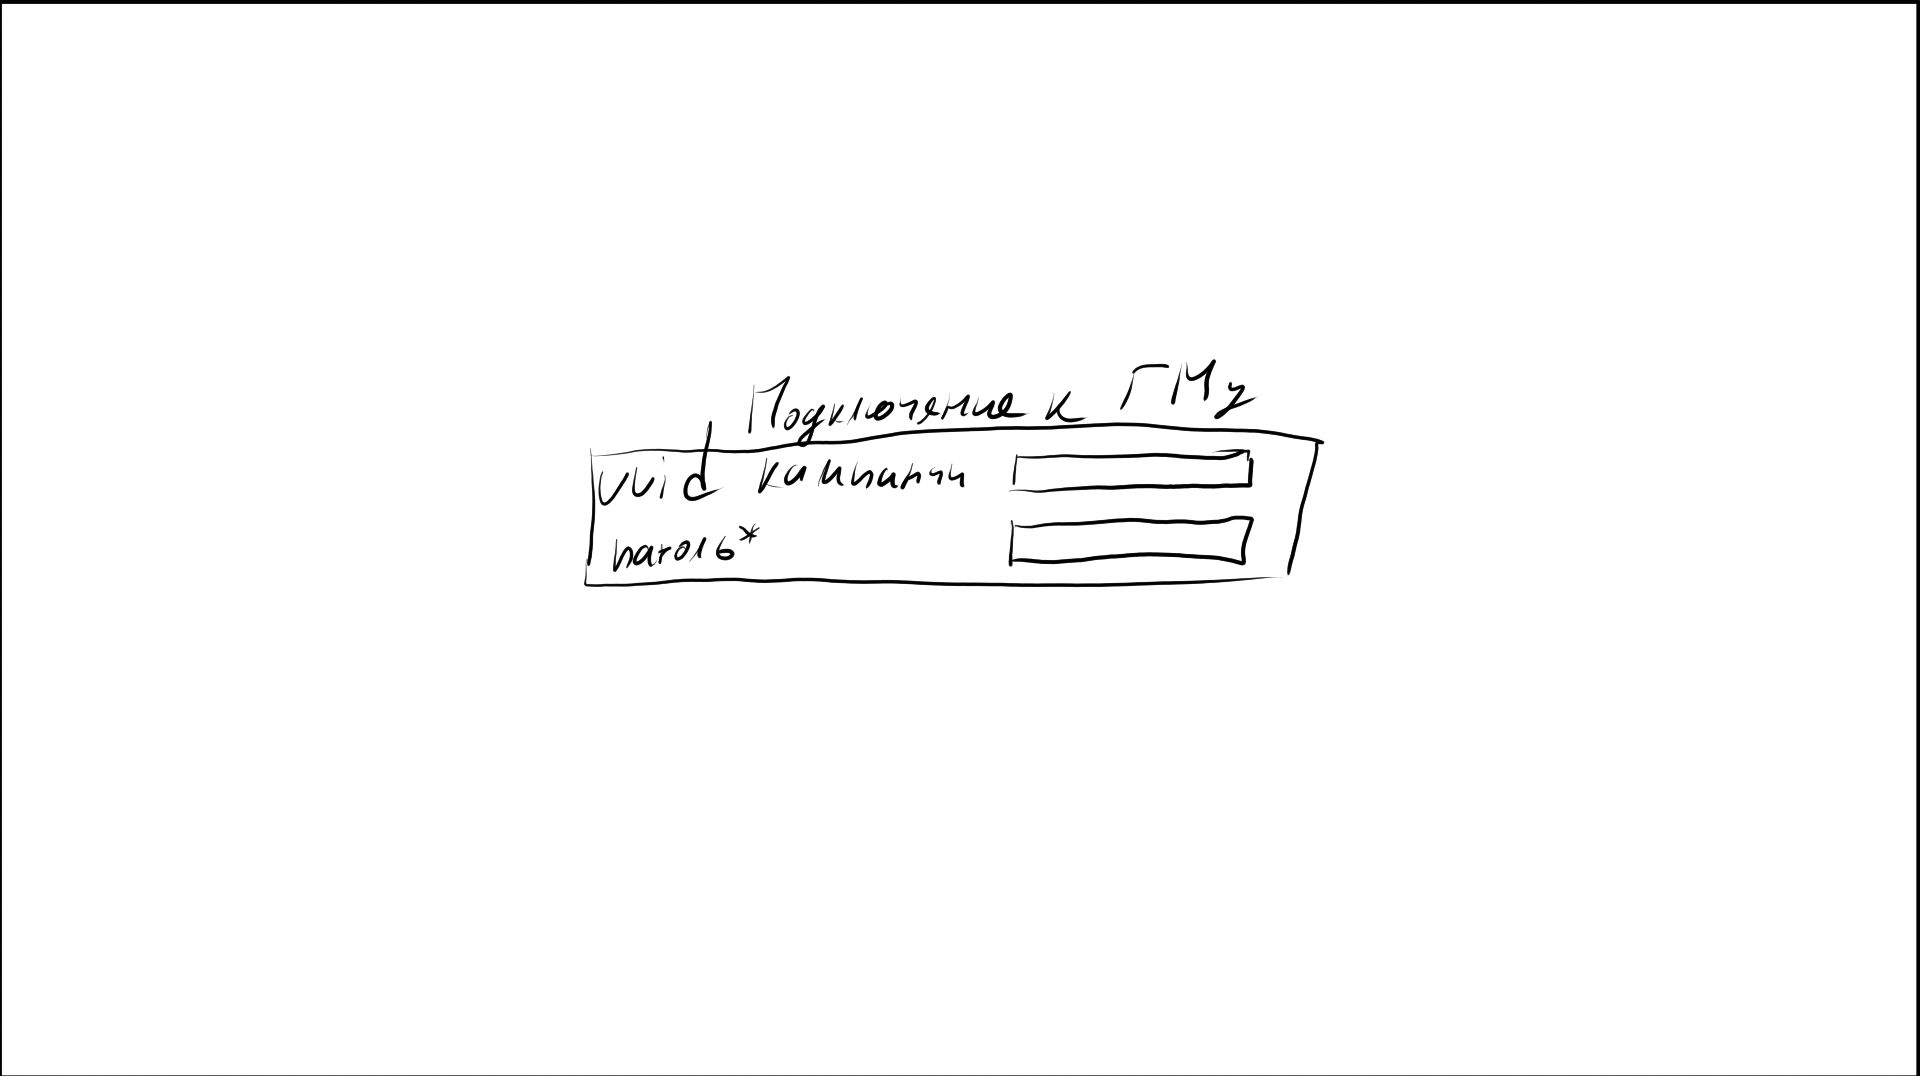 Подключение к ГМу
uuid кампании
пароль*